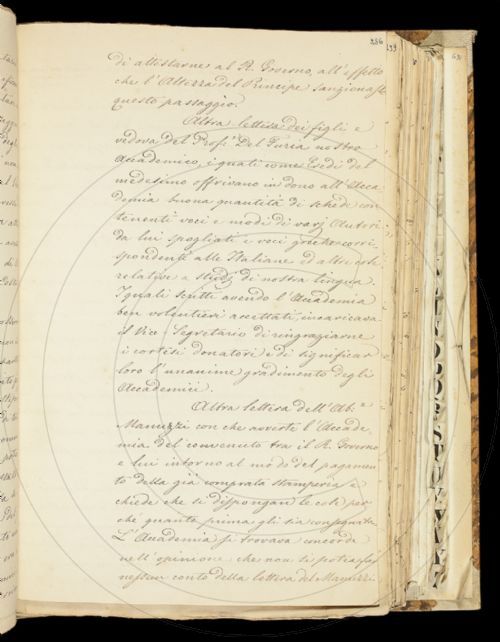 286
di attestarne al R. Governo, all'effetto
che l'Altezza del Principe sanzionasse
questo passaggio.
Altra lettera dei figli e
vedova del Prof.r Del Furia nostro
Accademico, i quali come Eredi del
medesimo offrivano in dono all'Acca
demia buona quantità di schede con
tenenti voci e modi di varj Autori
da lui spogliati e voci greche corri
spondenti alle Italiane ed altre cose
relative a studj di nostra lingua.
I quali scritti avendo l'Accademia
ben volentieri accettati, incaricava
il Vice Segretario di ringraziarne
i cortesi donatori e di significar
loro l'unanime gradimento degli
Accademici.
Altra lettera dell'Ab.e
Manuzzi con che avverte l'Accade
mia del convenuto tra il R. Governo
e lui intorno al modo del pagamen
to della già comprata stamperia e
chiede che si dispongan le cose per
che quanto prima gli sia consegnata.
L'Accademia si trovava concorde
nell'opinione che non si potesse far
nessun conto della lettera del Manuzzi